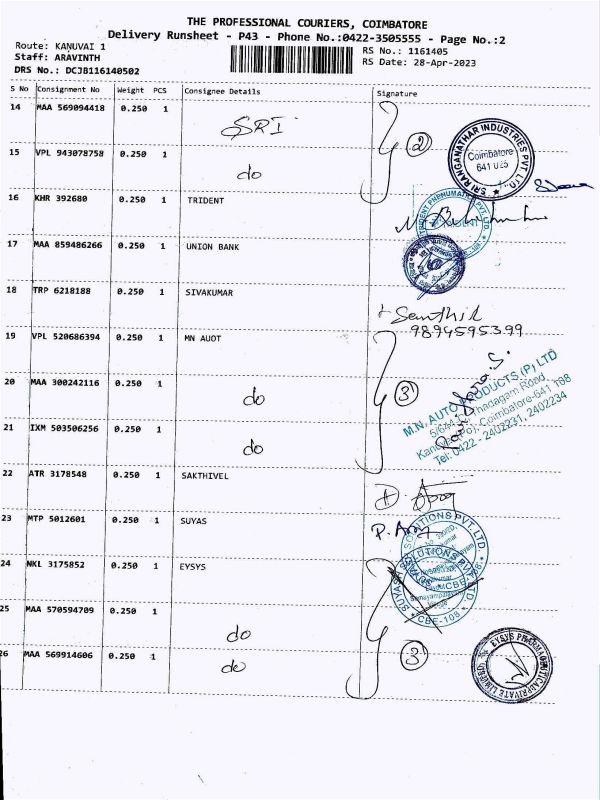 THE PROFESSIONAL COURIERS, COIMBATORE
Delivery Runsheet - P43 - Phone No.:0422-3505555 - Page No.:2
Route: KANUVAI 1
RS No.: 1161405
Staff: ARAVINTH
RS Date: 28-Apr-2023
DRS No.: DCJB116140502
S No Consignment No Weight PCS Consignee Details Signature
14 MAA 569094418 0.250 1 SRI
2
15 VPL 943078758 0.250 1 do
SRI RANGANATHAR INDUSTRIES PVT. LTD.
Coimbatore
641 025
16 KHR 392680 0.250 1 TRIDENT
TRIDENT PNEUMATICS PVT. LTD.
17 MAA 859486266 0.250 1 UNION BANK
18 TRP 6218188 0.250 1 SIVAKUMAR
Senthil
9894595399
19 VPL 520686394 0.250 1 MN AUOT
20 MAA 300242116 0.250 1 do
3
M.N. AUTO PRODUCTS (P) LTD
Thadagam Road
Coimbatore-641 108
Tel: 0422 - 2402231, 2402234
21 IXM 503506256 0.250 1 do
22 ATR 3178548 0.250 1 SAKTHIVEL
23 MTP 5012601 0.250 1 SUYAS
SUYAS SOLUTIONS PVT. LTD.
CBE-108
24 NKL 3175852 0.250 1 EYSYS
25 MAA 570594709 0.250 1 do
26 MAA 569914606 0.250 1 do
3
EYSYS PHARMACEUTICAL PRIVATE LIMITED